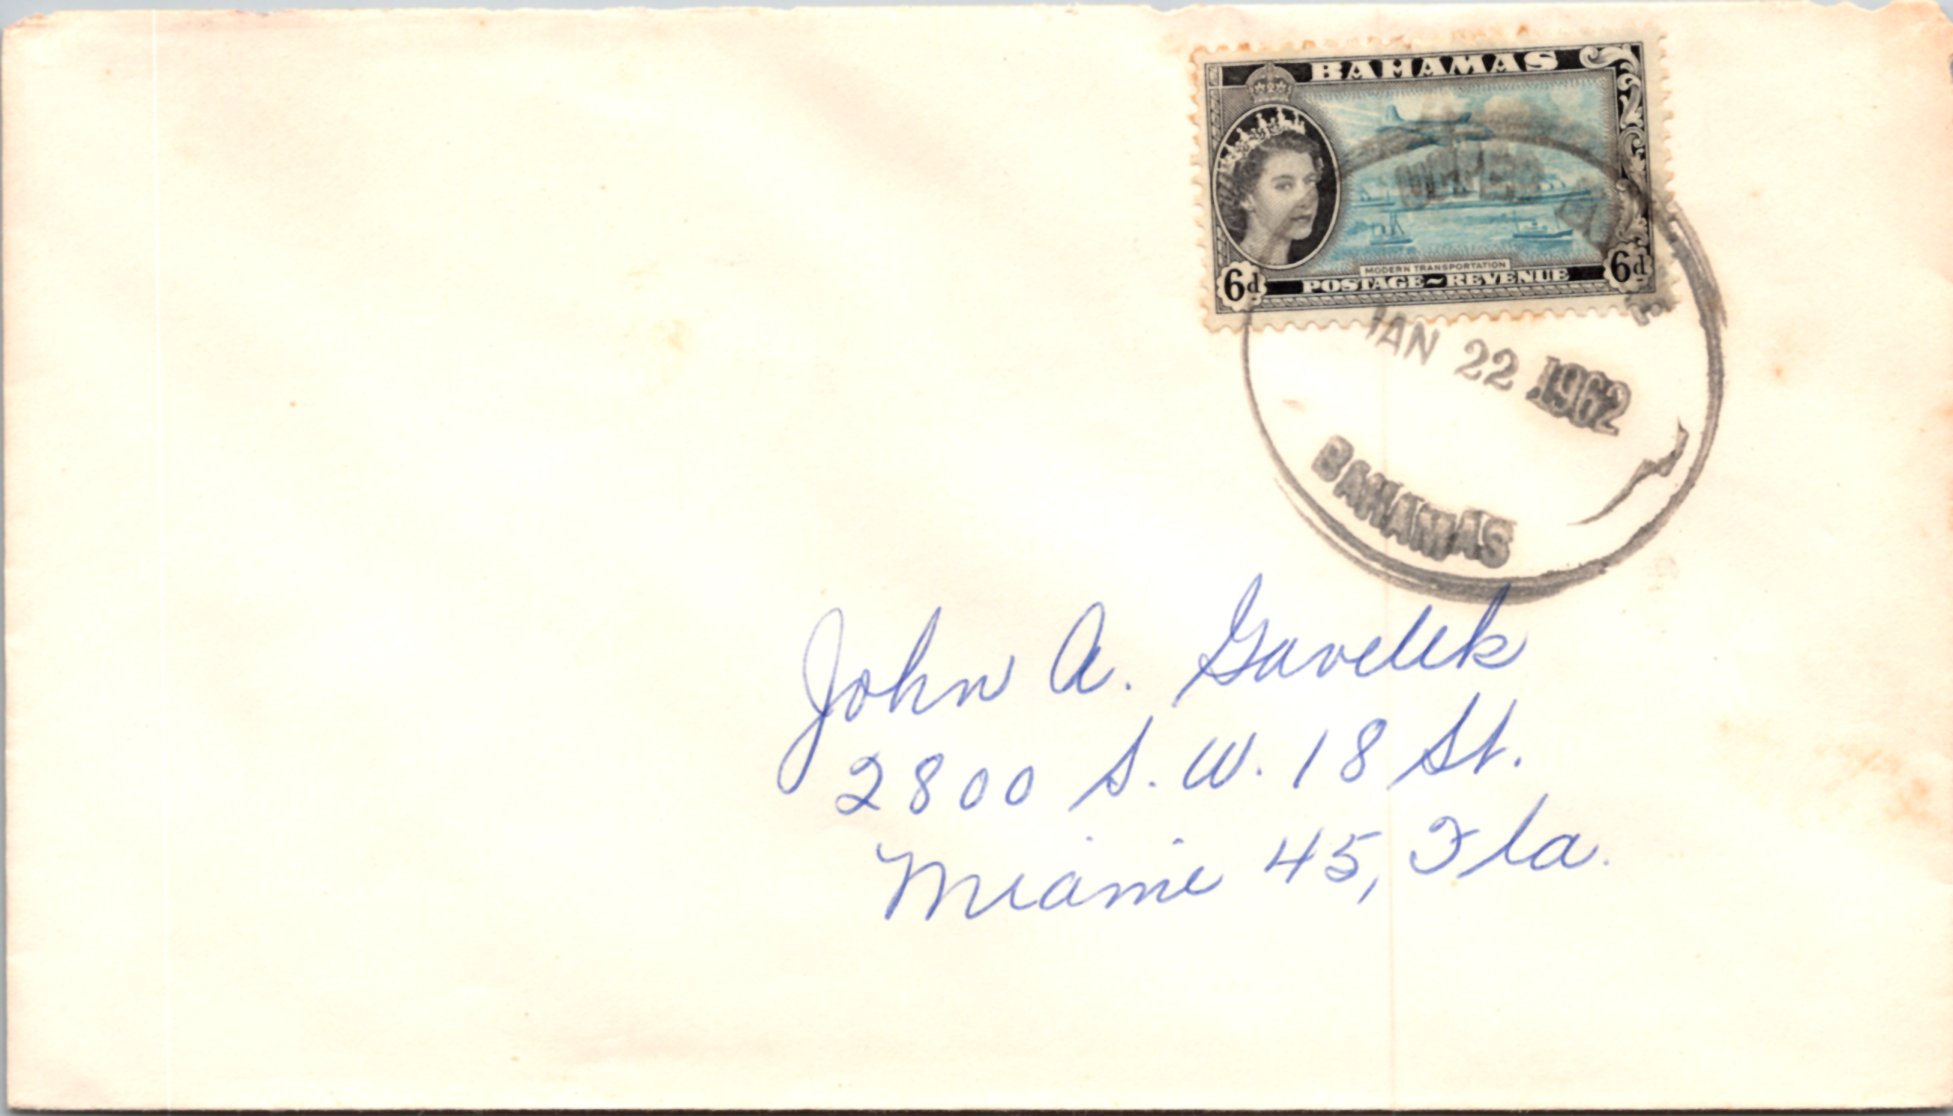 BAHAMAS
6d
6d
MODERN TRANSPORTATION
POSTAGE~REVENUE
UPPER
JAN 22 1962
BAHAMAS
John A. Gavelek
2800 S. W. 18 St.
Miami 45, Fla.